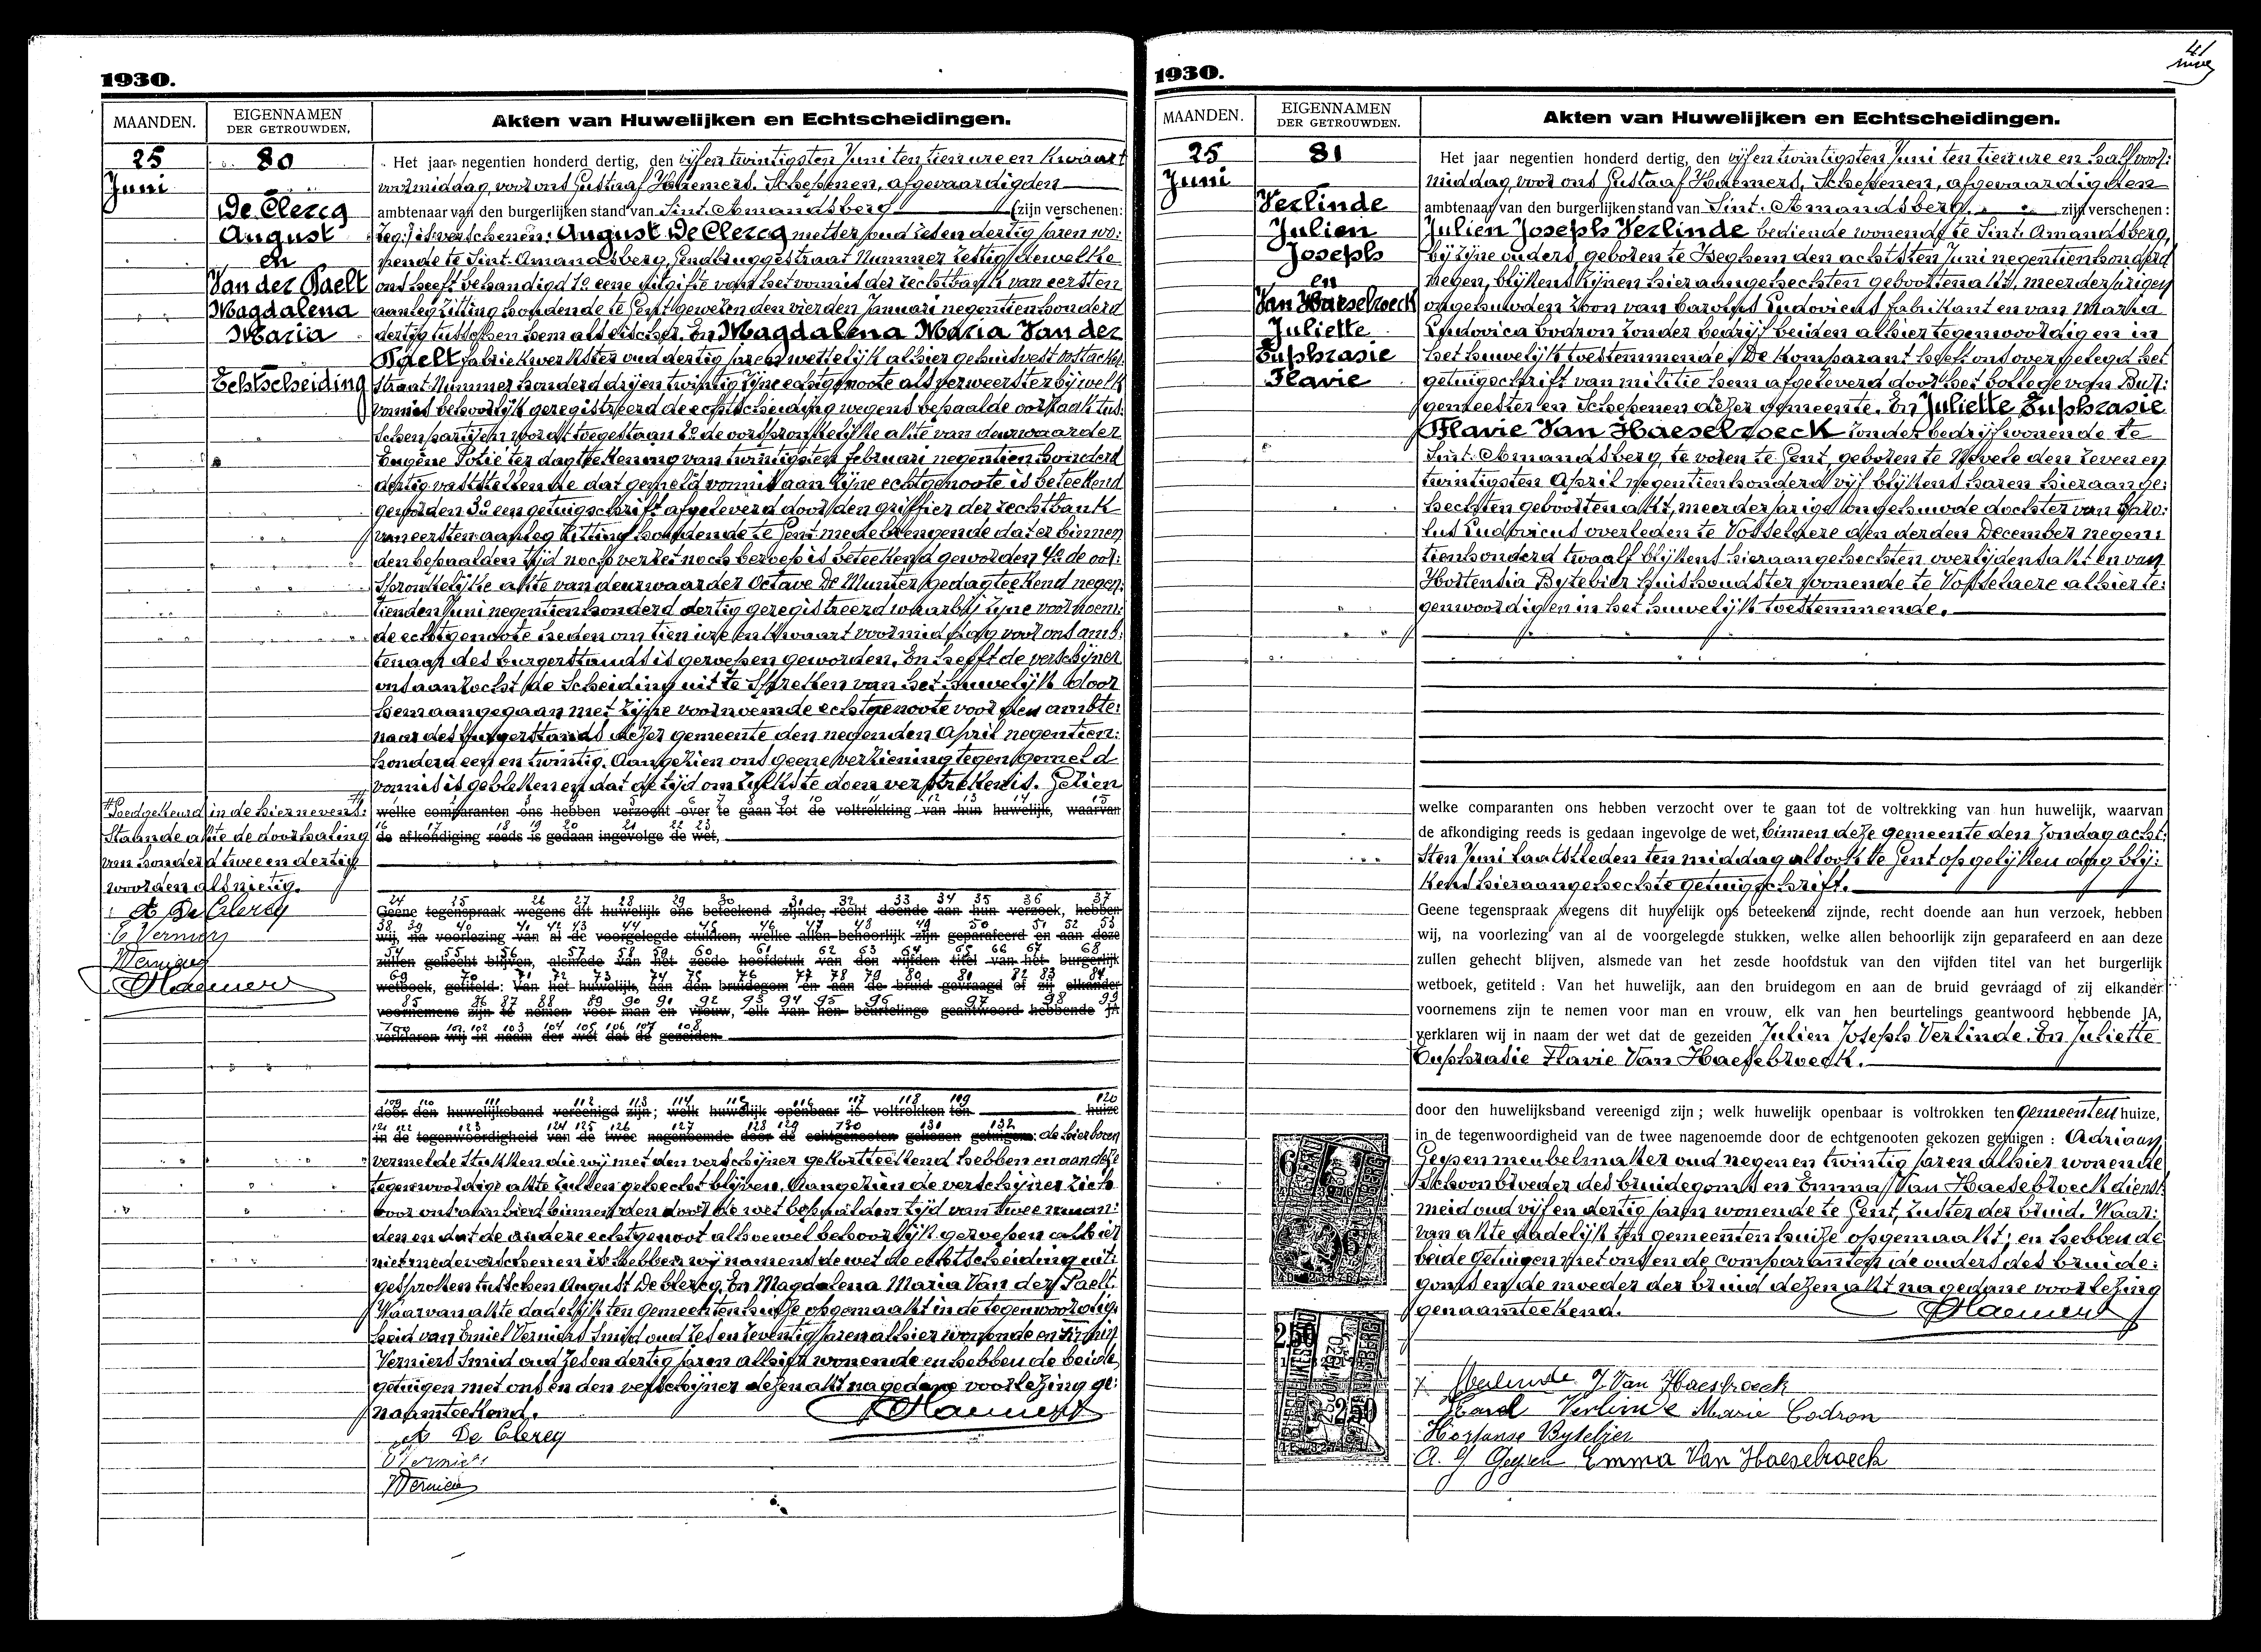 1930.
MAANDEN.
EIGENNAMEN
DER GETROUWDEN.
Akten van Huwelijken en Echtscheidingen.
25
Juni
80
De Clercq
August
en
Van der Paelt
Magdalena
Maria
Echtscheiding
Het jaar negentien honderd dertig, den vijf en twintigsten Juni ten tien ure en kwaart
voormiddag, voor ons Gustaaf Haemers, Schepenen, afgevaardigden
ambtenaar van den burgerlijken stand van Sint-Amandsberg (zijn verschenen:
is verschenen: August De Clercq metser oud zes en dertig jaren wo:
nende te Sint-Amandsberg, Gendbruggestraat Nummer zestig dewelke
ons heeft behandigd 1o eene uitgifte van het vonnis der rechtbank van eersten
aanleg zitting houdende te Gent gewezen den vierden Januari negentienhonderd
dertig tusschen hem als eischer. En Magdalena Maria Van der
Paelt fabriekwerkster oud dertig jaren wettelijk alhier gehuisvest
straat Nummer honderd drij en twintig zijne echtgenoote als verweerster bij welk
vonnis behoorlijk geregistreerd de echtscheiding wegens bepaalde oorzaak tus:
schen partijen wordt toegestaan 2o de oorspronkelijke akte van deurwaarder
Eugène Potié ter dagteekening van twintigsten februari negentienhonderd
dertig vaststellende dat gemeld vonnis aan zijne echtgenoote is beteekend
geworden 3o een getuigschrift afgeleverd door den griffier der rechtbank
van eersten aanleg zitting houdende te Gent medebrengende dat er binnen
den bepaalden tijd noch verzet noch beroep is beteekend geworden 4o de oor:
spronkelijke akte van deurwaarder Octave De Munter gedagteekend negen:
tienden Juni negentienhonderd dertig geregistreerd waarbij zijne voornoem:
de echtgenoote heden om tien ure en kwaart voormiddag voor ons amb:
tenaar des burgerstands is geroepen geworden. En heeft de verschijner
ons aanzocht de scheiding uit te spreken van het huwelijk door
hem aangegaan met zijne voornoemde echtgenoote voor den ambte:
naar des burgerstands dezer gemeente den negenden April negentien:
honderd een en twintig. Aangezien ons geene verziening tegen gemeld
vonnis is gebleken en dat de tijd om zulks te doen verstreken is. Gezien
welke comparanten ons hebben verzocht over te gaan tot de voltrekking van hun huwelijk, waarvan
de afkondiging reeds is gedaan ingevolge de wet,
Geene tegenspraak wegens dit huwelijk ons beteekend zijnde, recht doende aan hun verzoek, hebben
wij, na voorlezing van al de voorgelegde stukken, welke allen behoorlijk zijn geparafeerd en aan deze
zullen gehecht blijven, alsmede van het zesde hoofdstuk van den vijfden titel van het burgerlijk
wetboek, getiteld: Van het huwelijk, aan den bruidegom en aan de bruid gevraagd of zij elkander
voornemens zijn te nemen voor man en vrouw, elk van hen beurtelings geantwoord hebbende JA
verklaren wij in naam der wet dat de gezeiden
door den huwelijksband vereenigd zijn; welk huwelijk openbaar is voltrokken ten huize
in de tegenwoordigheid van de twee nagenoemde door de echtgenooten gekozen getuigen: de hierboven
vermelde stukken die wij met den verschijner gekortteekend hebben en aan deze
tegenwoordige akte zullen gehecht blijven. Aangezien de verschijner zich
voor ons aanbied binnen den door de wet bepaalden tijd van twee maan:
den en dat de andere echtgenoot alhoewel behoorlijk geroepen alhier
niet mede verschenen is hebben wij namens de wet de echtscheiding uit:
gesproken tusschen August De Clercq. En Magdalena Maria Van der Paelt.
Waarvan akte dadelijk ten gemeentenhuize opgemaakt in de tegenwoordig:
heid van Emiel Verniers smid oud zes en zeventig jaren alhier wonende en Firmin
Verniers smid oud zes en dertig jaren alhier wonende en hebben de beide
getuigen met ons en den verschijner dezen akt na gedane voorlezing ge:
naamteekend.
A De Clercq
Verniers
Verniers
GHaemers
Goedgekeurd in de hiernevens:
staande akte de doorhaling
van honderd twee en dertig
woorden als nietig.
A De Clercq
E Verniers
Verniers
GHaemers
1930.
41
MAANDEN.
EIGENNAMEN
DER GETROUWDEN.
Akten van Huwelijken en Echtscheidingen.
25
Juni
81
Verlinde
Julien
Joseph
en
Van Haesebroeck
Juliette
Euphrasie
Flavie
Het jaar negentien honderd dertig, den vijf en twintigsten Juni ten tien ure en half voor:
middag, voor ons Gustaaf Haemers, Schepenen, afgevaardigden
ambtenaar van den burgerlijken stand van Sint-Amandsberg. zijn verschenen:
Julien Joseph Verlinde bediende wonende te Sint-Amandsberg,
bij zijne ouders, geboren te Iseghem den achtsten Juni negentienhonderd
negen, blijkens zijnen hieraangehechten geboortenakt, meerderjarigen
ongehuwden zoon van Carolus Ludovicus fabrikant en van Maria
Ludovica Codron zonder bedrijf beiden alhier tegenwoordig en in
het huwelijk toestemmende. De komparant heeft ons overgelegd het
getuigschrift van militie hem afgeleverd door het College van Bur:
gemeester en Schepenen dezer gemeente. En Juliette Euphrasie
Flavie Van Haesebroeck zonder bedrijf wonende te
Sint-Amandsberg, te voren te Gent, geboren te Nevele den zeven en
twintigsten April negentienhonderd vijf blijkens haren hieraange:
hechten geboortenakt, meerderjarige ongehuwde dochter van Caro:
lus Ludovicus overleden te Vosselaere den derden December negen:
tienhonderd twaalf blijkens hieraangehechten overlijdensakt en van
Hortensia Bytebier huishoudster wonende te Vosselaere alhier te:
genwoordig en in het huwelijk toestemmende.
welke comparanten ons hebben verzocht over te gaan tot de voltrekking van hun huwelijk, waarvan
de afkondiging reeds is gedaan ingevolge de wet, binnen deze gemeente den Zondag acht:
sten Juni laatstleden ten middag alsook te Gent op gelijken dag blij:
kens hieraangehechte getuigschrift.
Geene tegenspraak wegens dit huwelijk ons beteekend zijnde, recht doende aan hun verzoek, hebben
wij, na voorlezing van al de voorgelegde stukken, welke allen behoorlijk zijn geparafeerd en aan deze
zullen gehecht blijven, alsmede van het zesde hoofdstuk van den vijfden titel van het burgerlijk
wetboek, getiteld: Van het huwelijk, aan den bruidegom en aan de bruid gevraagd of zij elkander
voornemens zijn te nemen voor man en vrouw, elk van hen beurtelings geantwoord hebbende JA,
verklaren wij in naam der wet dat de gezeiden Julien Joseph Verlinde. En Juliette
Euphrasie Flavie Van Haesebroeck.
door den huwelijksband vereenigd zijn; welk huwelijk openbaar is voltrokken ten Gemeenten huize,
in de tegenwoordigheid van de twee nagenoemde door de echtgenooten gekozen getuigen: Adriaan
Geysen meubelmaker oud negen en twintig jaren alhier wonende
schoonbroeder des bruidegoms en Emma Van Haesebroeck dienst
meid oud vijf en dertig jaren wonende te Gent, zuster der bruid. Waar:
van akte dadelijk ten gemeentenhuize opgemaakt; en hebben de
beide getuigen met ons en de comparanten de ouders des bruide:
goms en de moeder der bruid dezen akt na gedane voorlezing
genaamteekend.
GHaemers
J. Verlinde J. Van Haesebroeck
Karel Verlinde Marie Codron
Hortanse Bytebier
A. J. Geysen Emma Van Haesebroeck